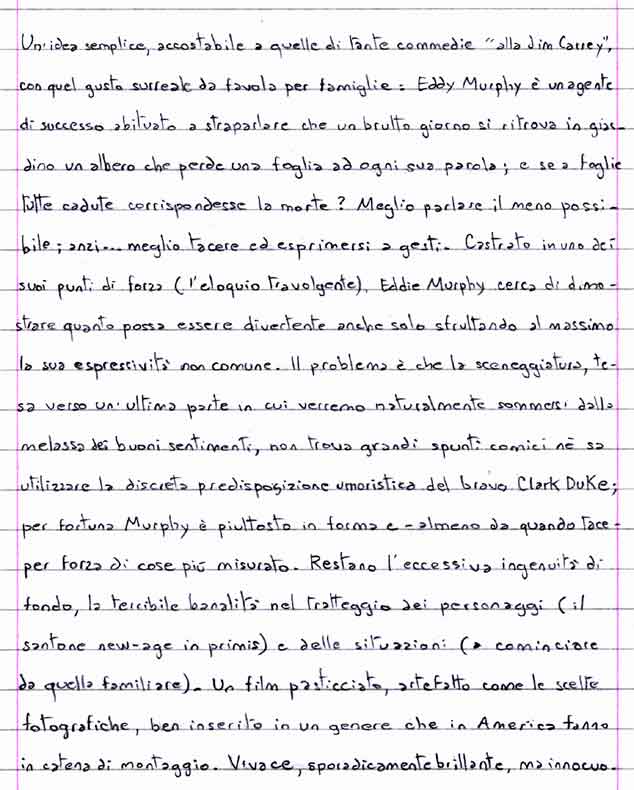 Un'idea semplice, accostabile a quelle di tante commedie "alla Jim Carrey",
con quel gusto surreale da favola per famiglie: Eddy Murphy è un agente
di successo abituato a straparlare che un brutto giorno si ritrova in giar-
dino un albero che perde una foglia ad ogni sua parola; e se a foglie
tutte cadute corrispondesse la morte? Meglio parlare il meno possi-
bile; anzi... meglio tacere ed esprimersi a gesti. Castrato in uno dei
suoi punti di forza (l'eloquio travolgente), Eddie Murphy cerca di dimo-
strare quanto possa essere divertente anche solo sfruttando al massimo
la sua espressività non comune. Il problema è che la sceneggiatura, te-
sa verso un'ultima parte in cui verremo naturalmente sommersi dalla
melassa dei buoni sentimenti, non trova grandi spunti comici nè sa
utilizzare la discreta predisposizione umoristica del bravo Clark Duke;
per fortuna Murphy è piuttosto in forma e - almeno da quando tace -
per forza di cose più misurato. Restano l'eccessiva ingenuità di
fondo, la terribile banalità nel tratteggio dei personaggi (il
santone new-age in primis) e delle situazioni (a cominciare
da quella familiare). Un film pasticciato, artefatto come le scelte
fotografiche, ben inserito in un genere che in America fanno
in catena di montaggio. Vivace, sporadicamente brillante, ma innocuo.